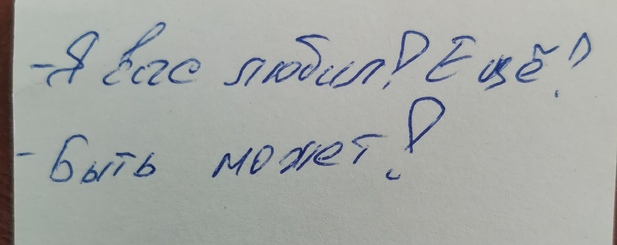 -Я вас любил! Ещё!
- Быть может!